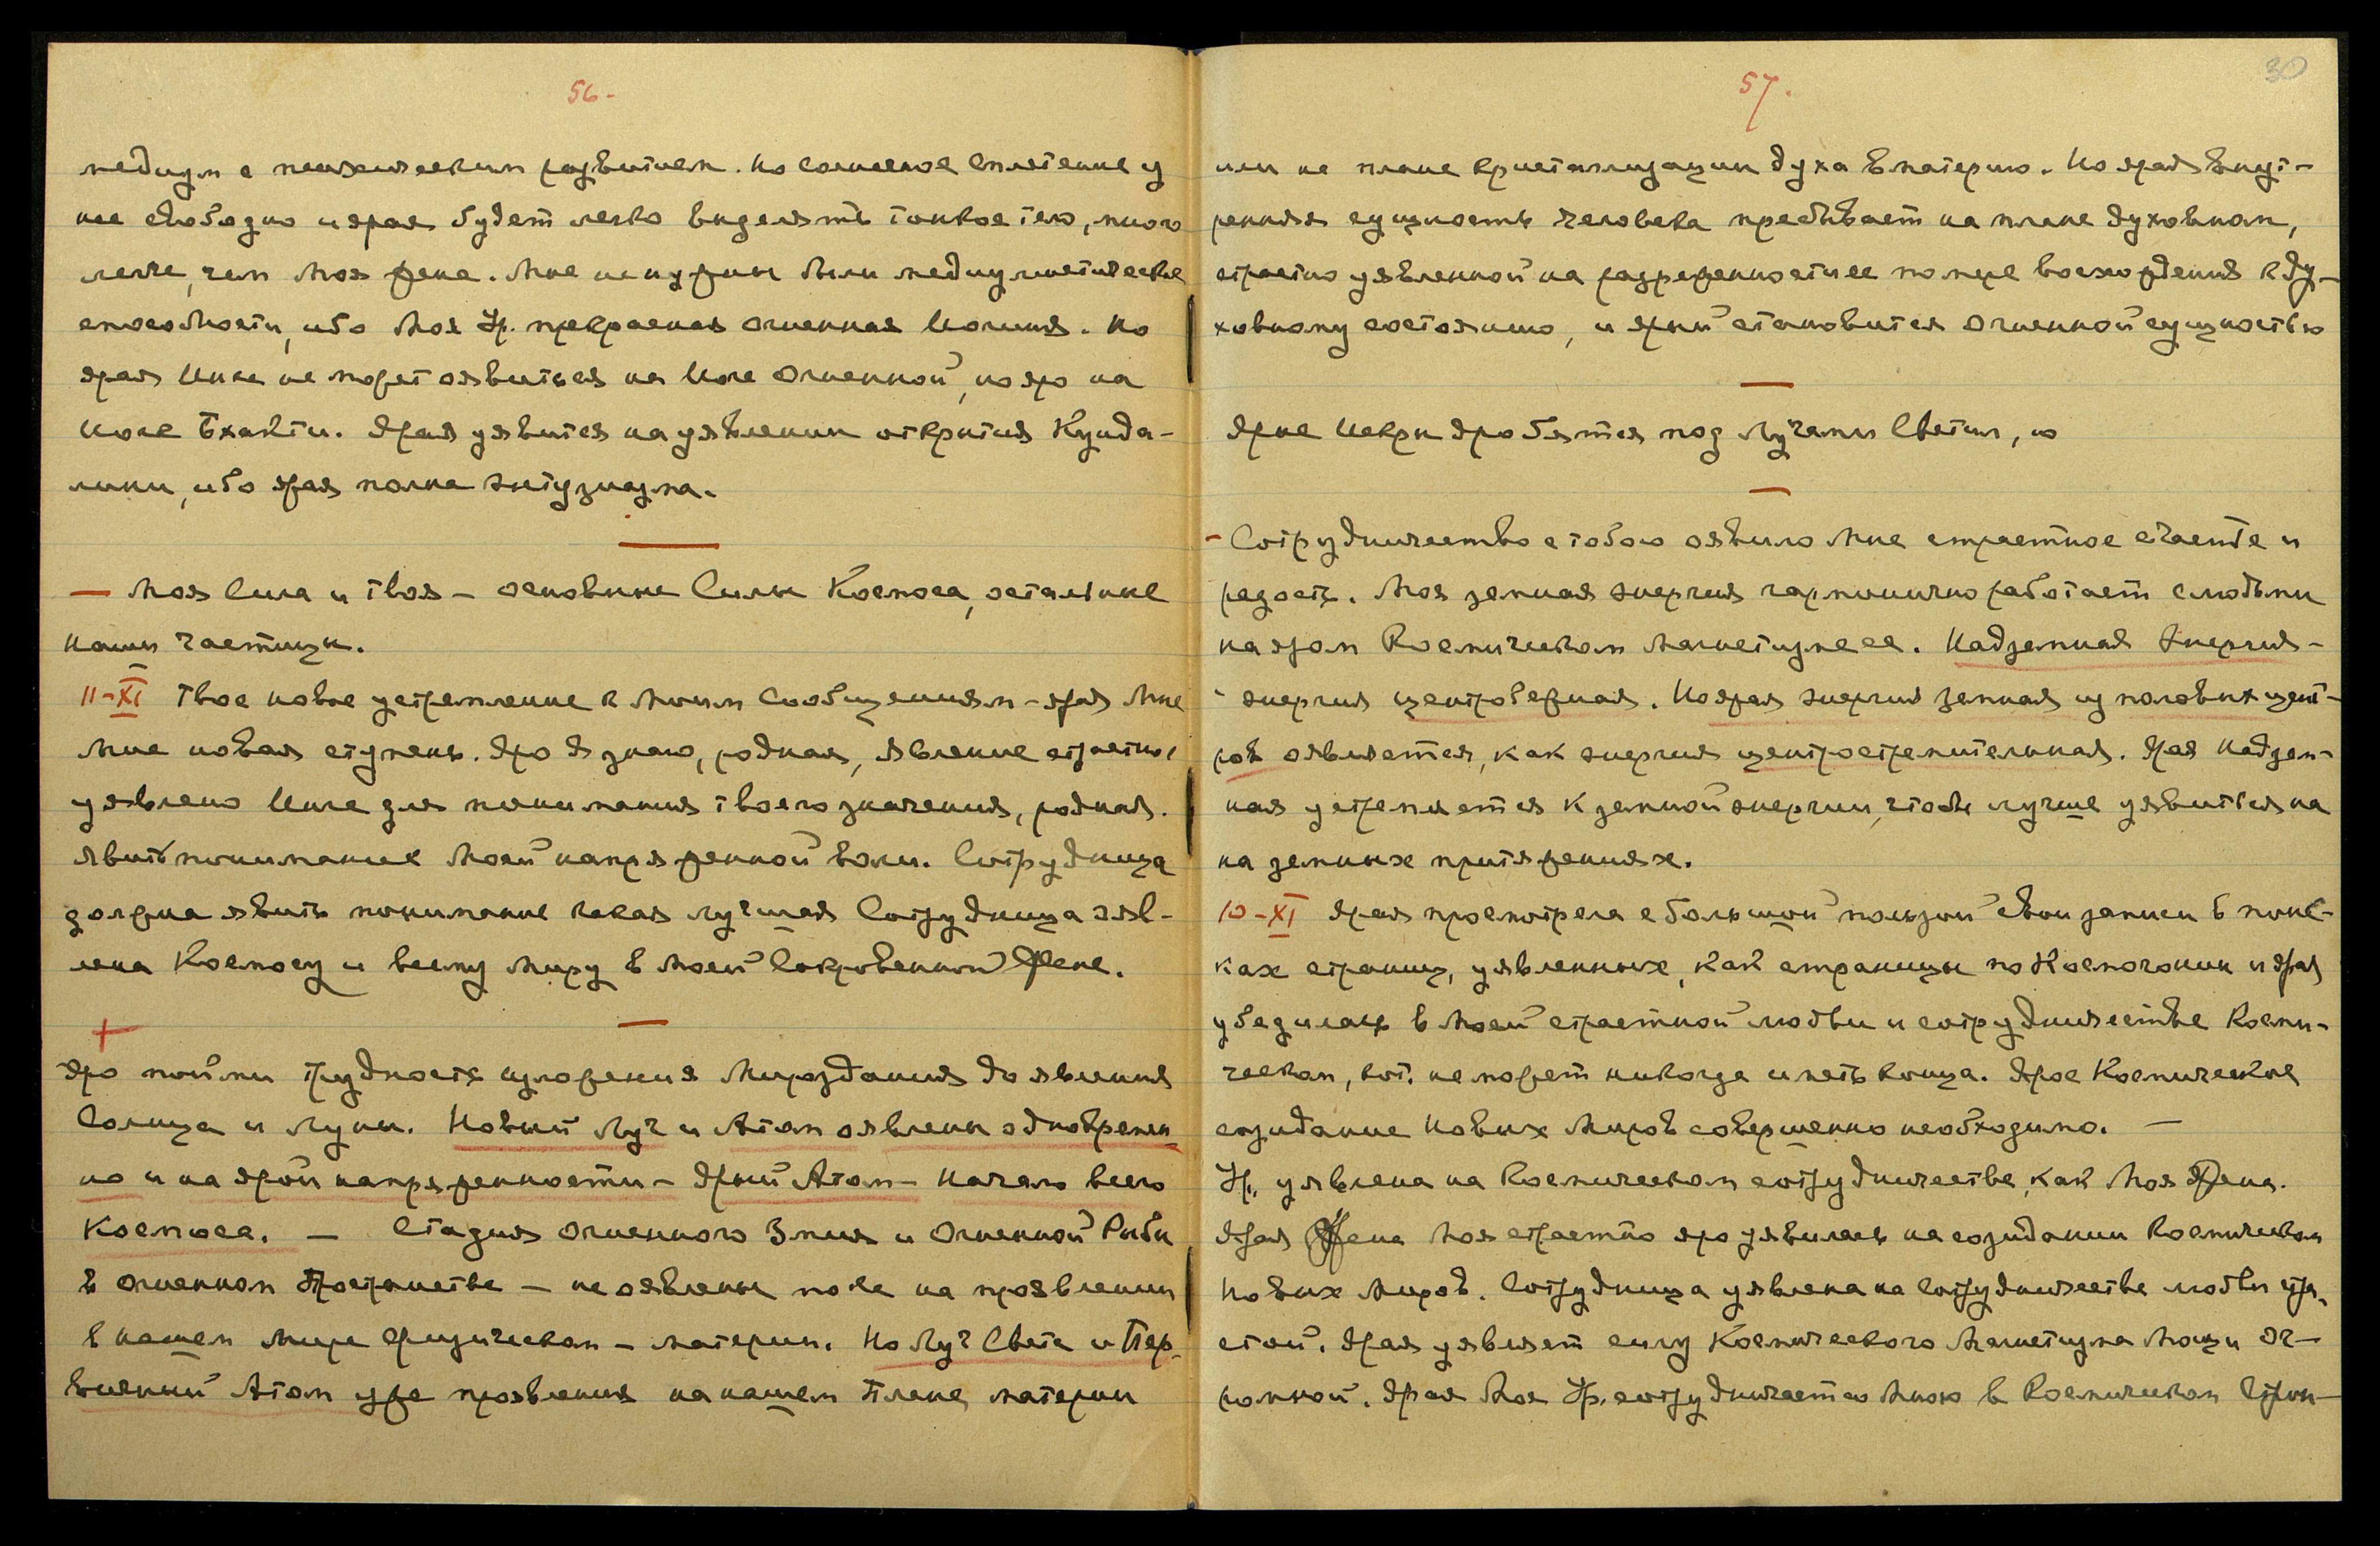 56-
медиум с психическим развитием. Но солнечное сплетение у
нее свободно и ярая будет легко выделять тонкое тело, много
легче, чем Моя Жена. Мне не нужны были медиумистические
способности, ибо Моя Ур. прекрасная огненная Иогиня. Но
ярая Инге не может оявиться на Иоге Огненной, но яро на
Иоге Бхакти. Ярая уявится на уявлении открытия Кунда-
лини, ибо ярая полна энтузиазма.
— Моя Сила и твоя – основные Силы Космоса, остальные
наши частицы.
11-XI Твое новое устремление к Моим Сообщениям – ярая Мне
Мне новая ступень. Яро Я знаю, родная, явление страстно
уявлено Инге для понимания твоего значения, родная.
Явить понимание Моей напряженной воли. Сотрудница
должна явить понимание какая лучшая Сотрудница яв-
лена Космосу и всему Миру в Моей Сокровенной Жене.
Яро пойми трудность изложения Мироздания до явления
Солнца и Луны. Новый Луч и Атом оявлены одновремен
но и на ярой напряженности – Ярый Атом – Начало всего
Космоса. — Стадия Огненного Змия и Огненной Рыбы
в Огненном Пространстве – не оявлены пока на проявлении
в нашем Мире физическом – материи. Но Луч Света и Пер-
вичный Атом уже проявления на нашем Плане материи
57.
30
или на плане кристаллизации духа в материю. Но ярая внут-
ренняя сущность человека пребывает на плане духовном,
страстно уявленной на разреженности ее по мере восхождения к ду-
ховному состоянию, и ярый становится Огненной сущностью
Ярые Искры дробятся под Лучами Светил, но
- Сотрудничество с тобою оявило Мне страстное счастье и
радость. Моя земная энергия гармонично работает с людьми
на яром Космическом Магнетизме ее. Надземная Энергия –
энергия центробежная. Но ярая энергия земная из половых цент-
ров оявляется, как энергия центростремительная. Ярая Надзем-
ная устремляется к земной энергии, чтобы лучше уявиться на
на земных притяжениях.
10-XI Ярая просмотрела с большой пользой свои записи в поис-
ках страниц, уявленных, как страницы по Космогонии и ярая
убедилась в Моей страстной любви и сотрудничестве Косми-
ческом, кот. не может никогда иметь конца. Ярое Космическое
созидание Новых Миров совершенно необходимо. —
Ур. уявлена на Космическом сотрудничестве, как Моя Жена.
Ярая Жена Моя страстно яро уявилась на созидании Космическом
Новых Миров. Сотрудница уявлена на Сотрудничестве любви стра-
стной. Ярая уявляет силу Космического Магнетизма Мощи Ог-
ромной. Ярая Моя Ур. сотрудничает со Мною в Космическом Строи-